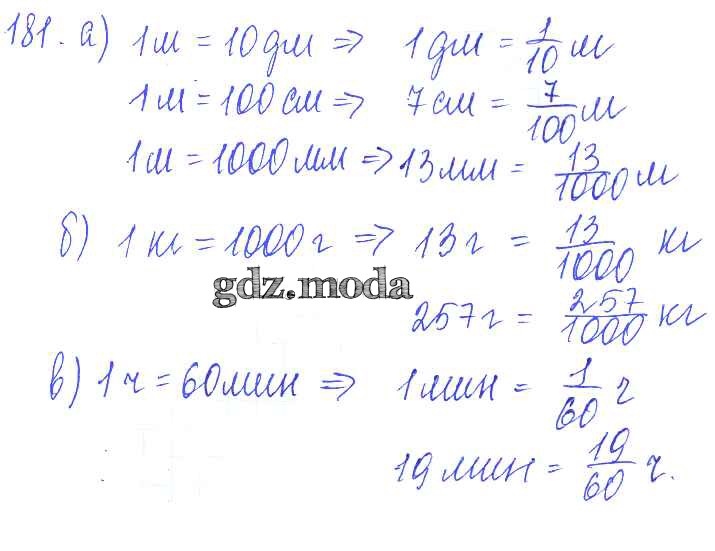 181. а) 1м = 10дм ⇒ 1дм = 1/10 м
1м = 100см ⇒ 7см = 7/100 м
1м = 1000мм ⇒ 13мм = 13/1000 м
б) 1кг = 1000г ⇒ 13г = 13/1000 кг
gdz.moda
257г = 257/1000 кг
в) 1ч = 60мин ⇒ 1мин = 1/60 г
19мин = 19/60 ч.